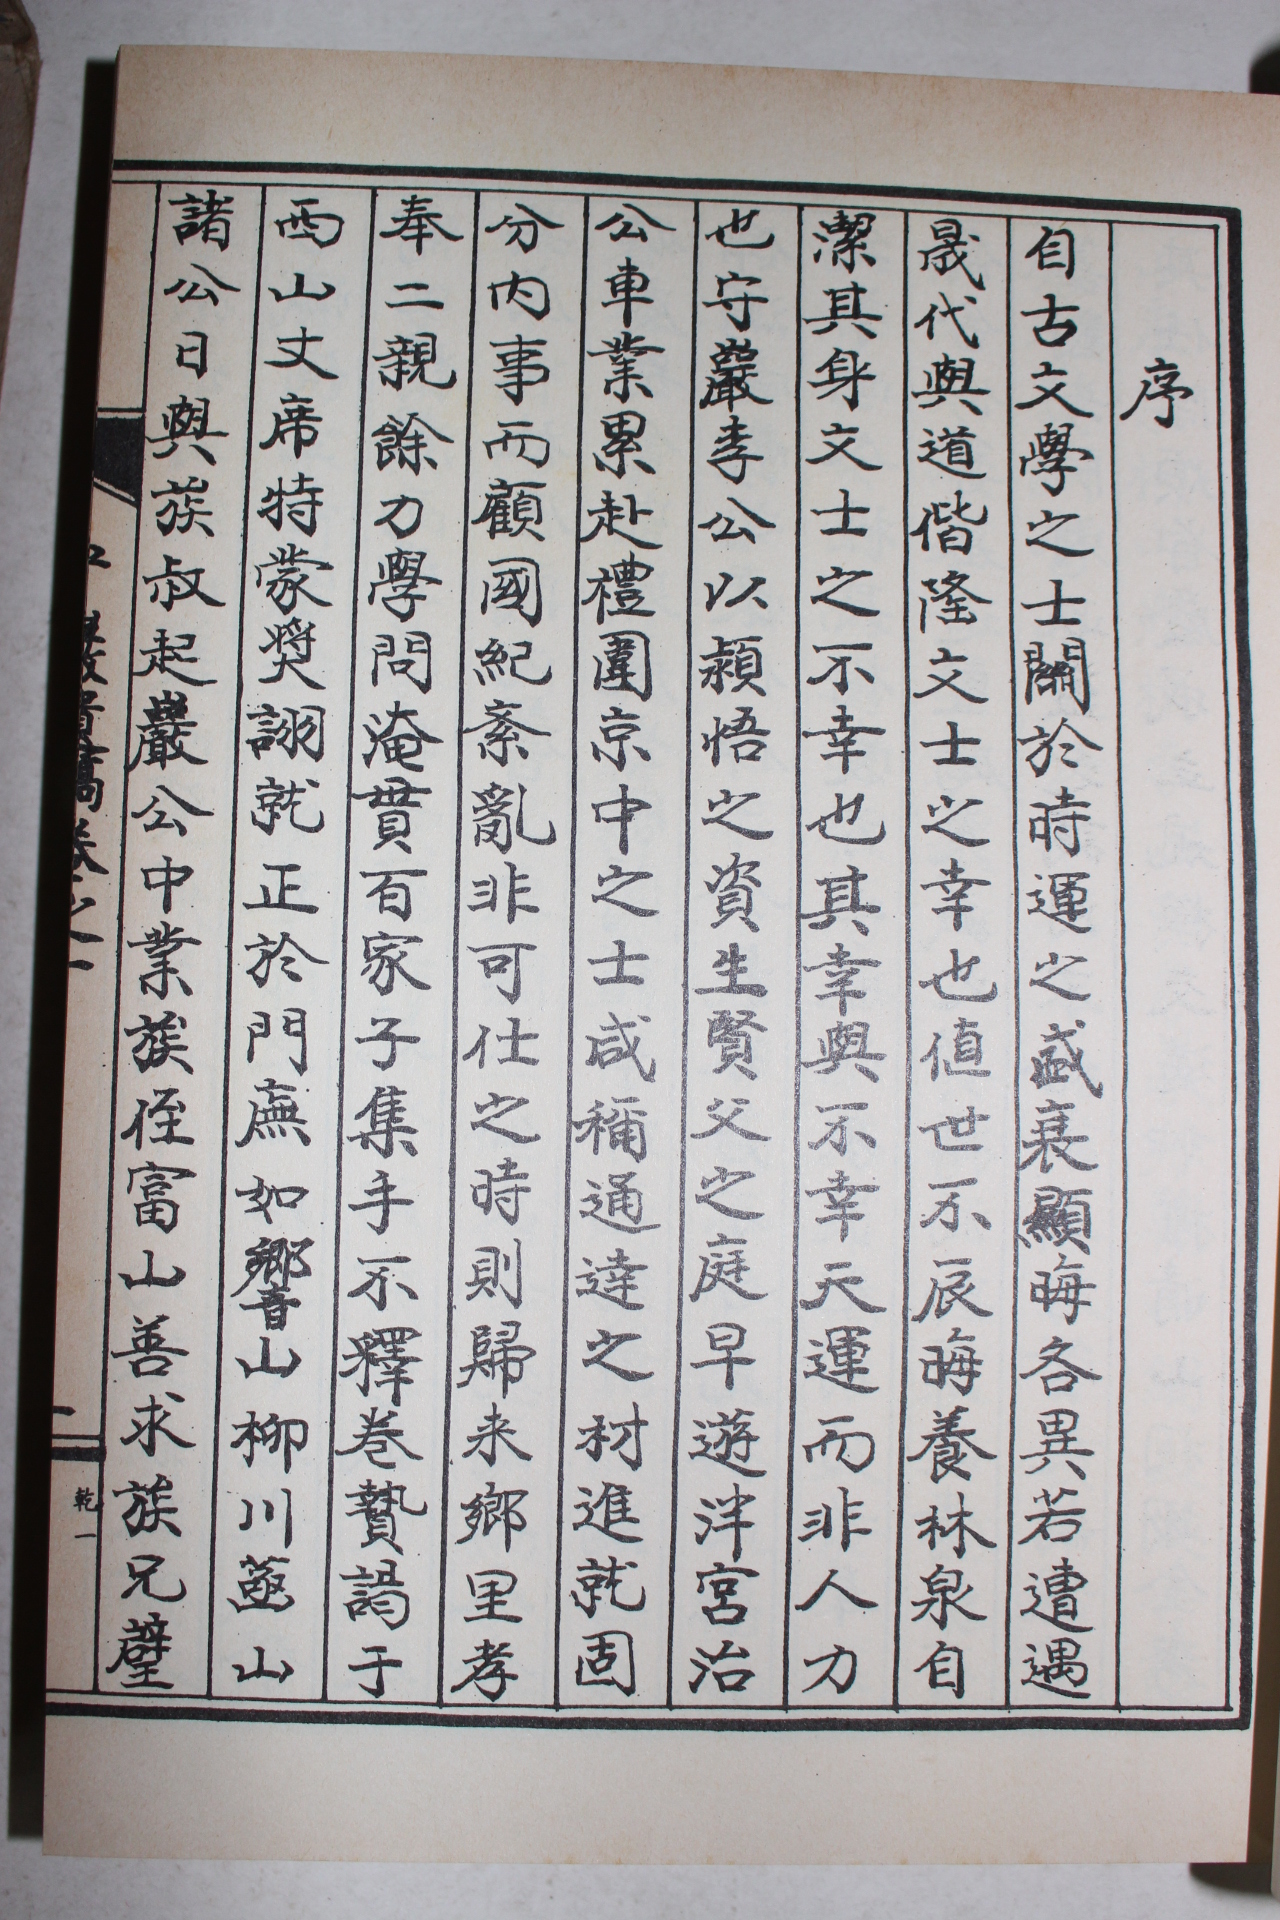 序
自古文學之士關於時運之盛衰顯晦各異若遭遇
晟代與道偕隆文士之幸也値世不辰晦養林泉自
潔其身文士之不幸也其幸與不幸天運而非人力
也守巖李公以潁悟之資生賢父之庭早遊泮宮治
公車業累赴禮圍京中之士咸稱通達之材進就固
分內事而顧國紀紊亂非可仕之時則歸来鄉里孝
奉二親餘力學問淹貫百家子集手不釋卷贄謁于
西山丈席特蒙奬詡就正於門廡如響山柳川蓝山
諸公日與族叔起巖公中業族侄富山善求族兄壁
巖散賞藁卷之一
乾一